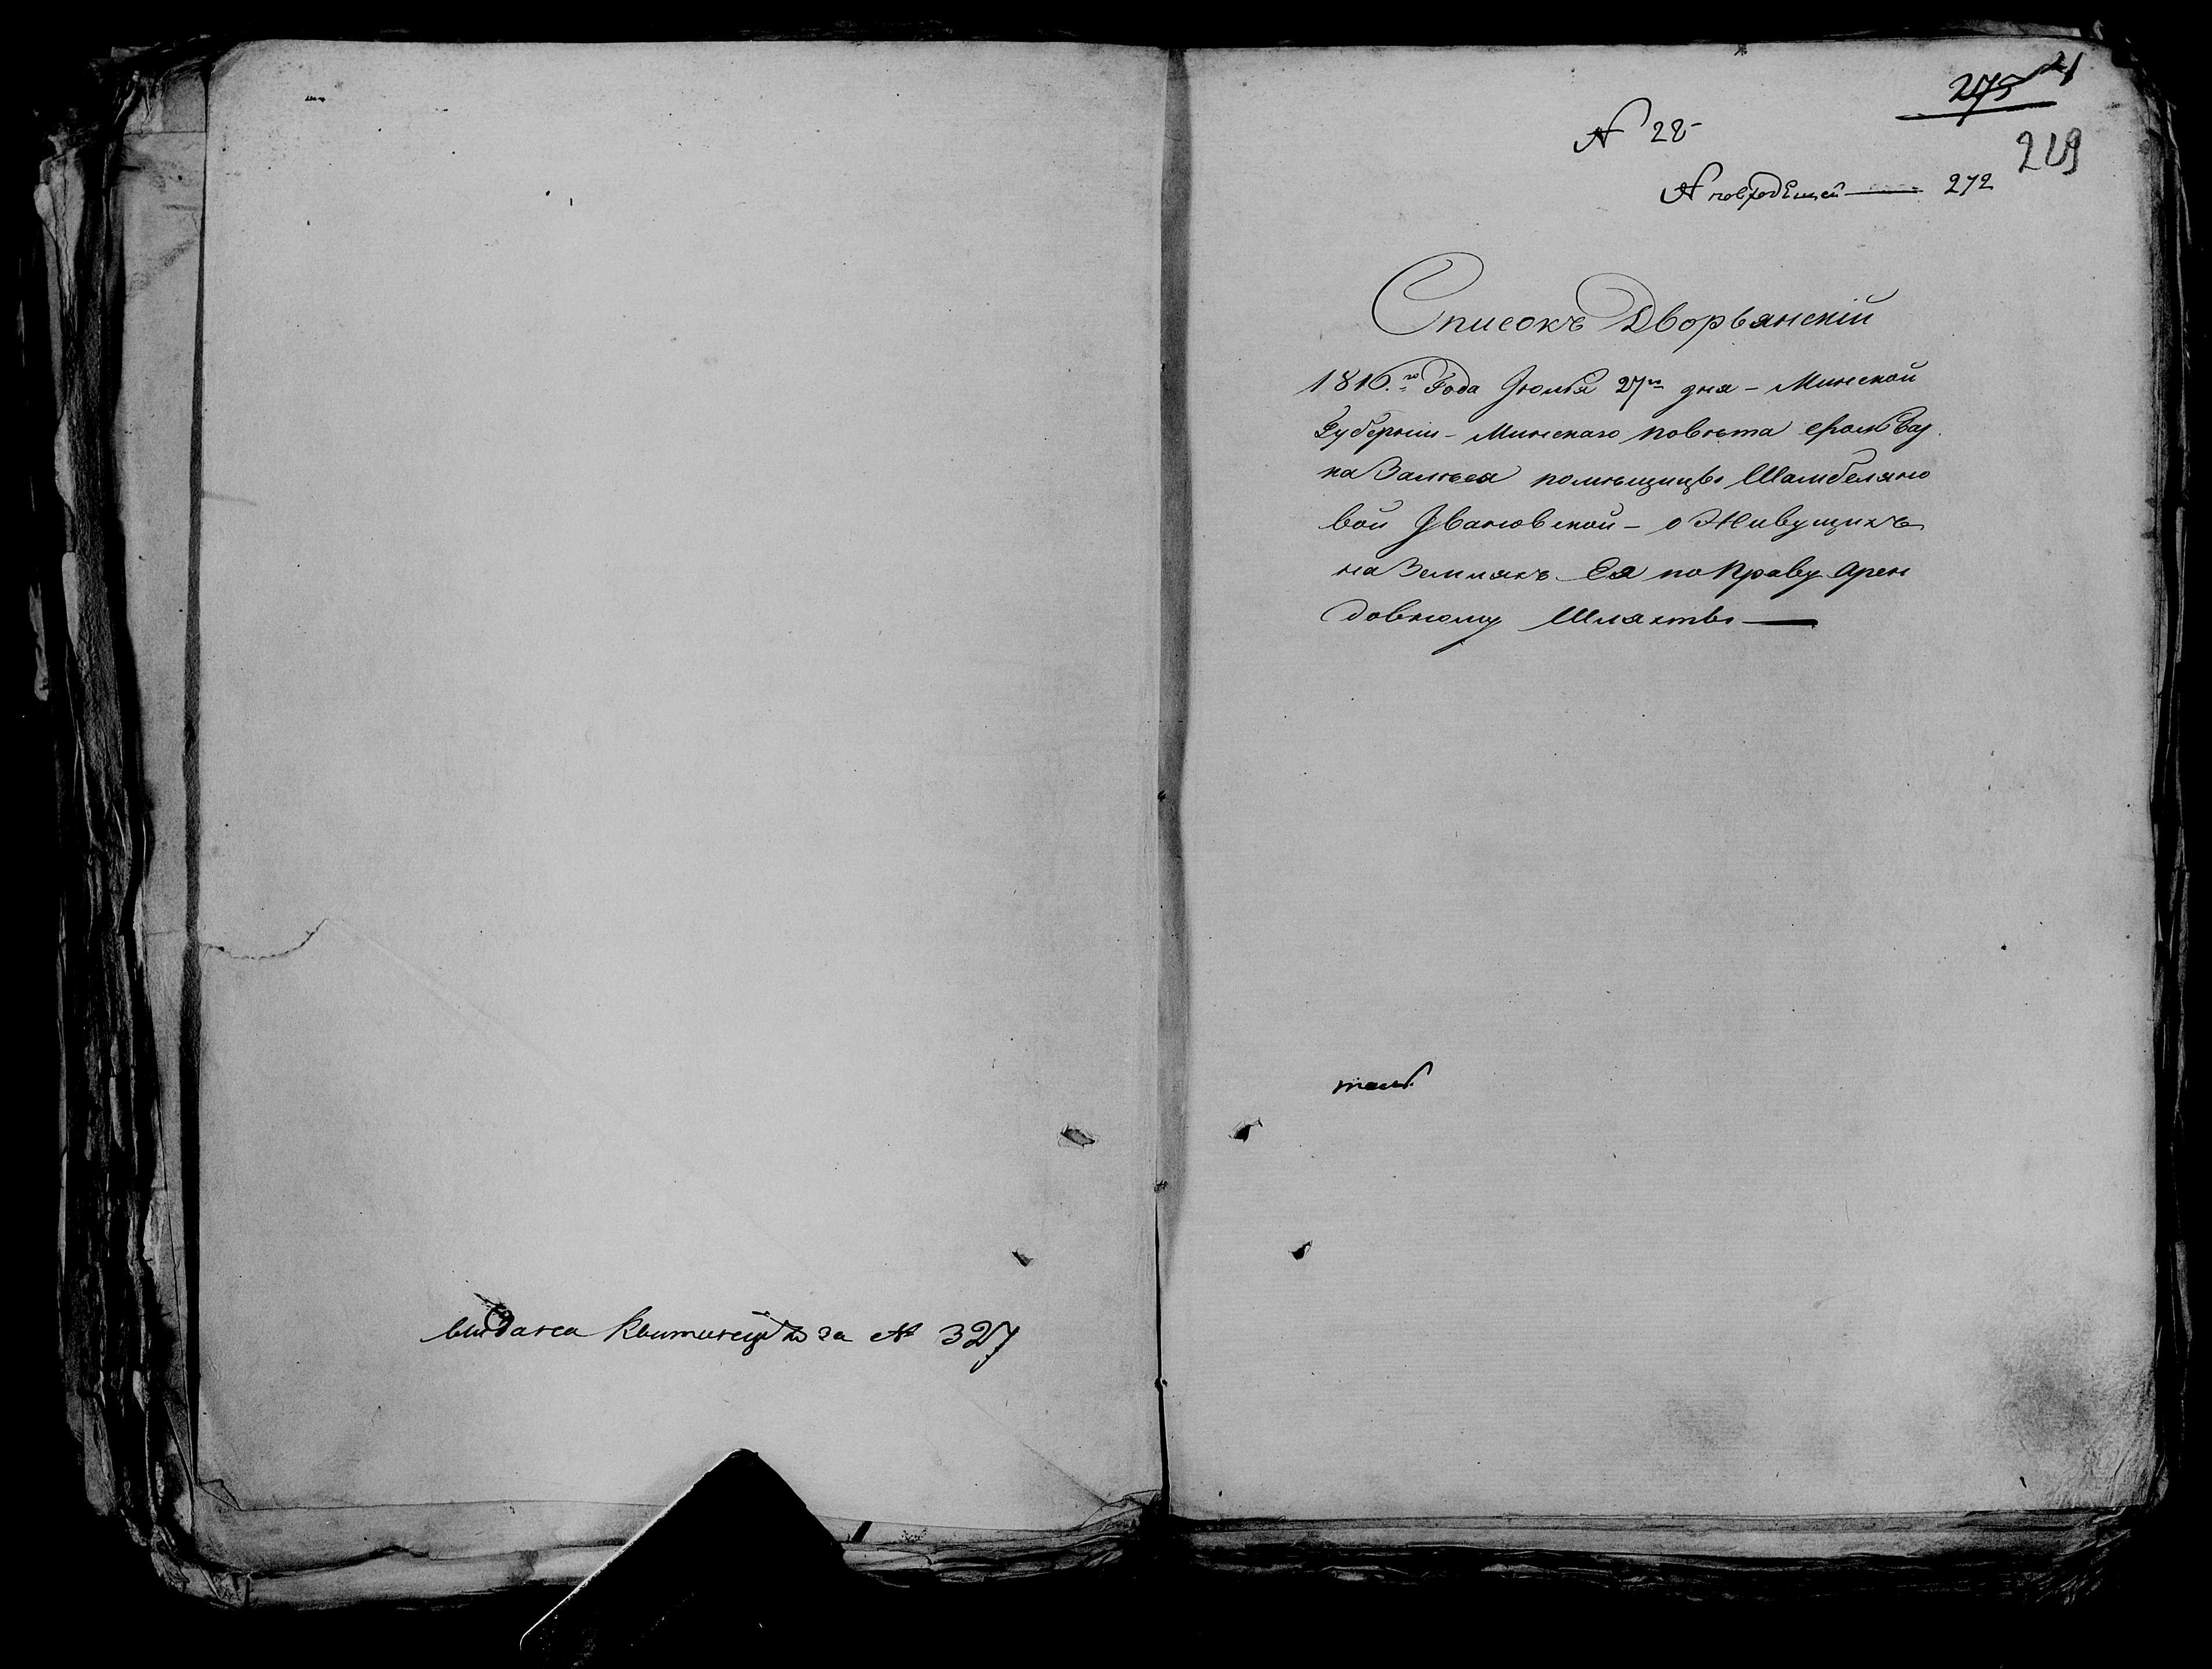 выдана квитанция за № 327
275
219
№ 28
№ повходящей — 272
Списокъ Дворьянскій
1816.го Года Іюлья 27го дня - Минской
Губерніи - Минскаго повѣта фольвар
ка Залѣся помѣщицы Шамбеляно
вой Ивановской - о Живущихъ
на Земляхъ Ея по Праву Арен
довному Шляхты —